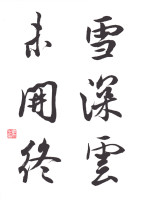 雪深雲
未開終